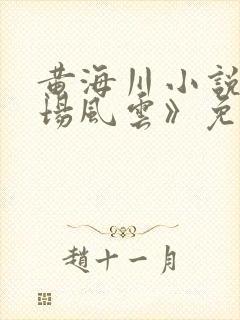 黄海川小說
場風雲》免
趙十一月